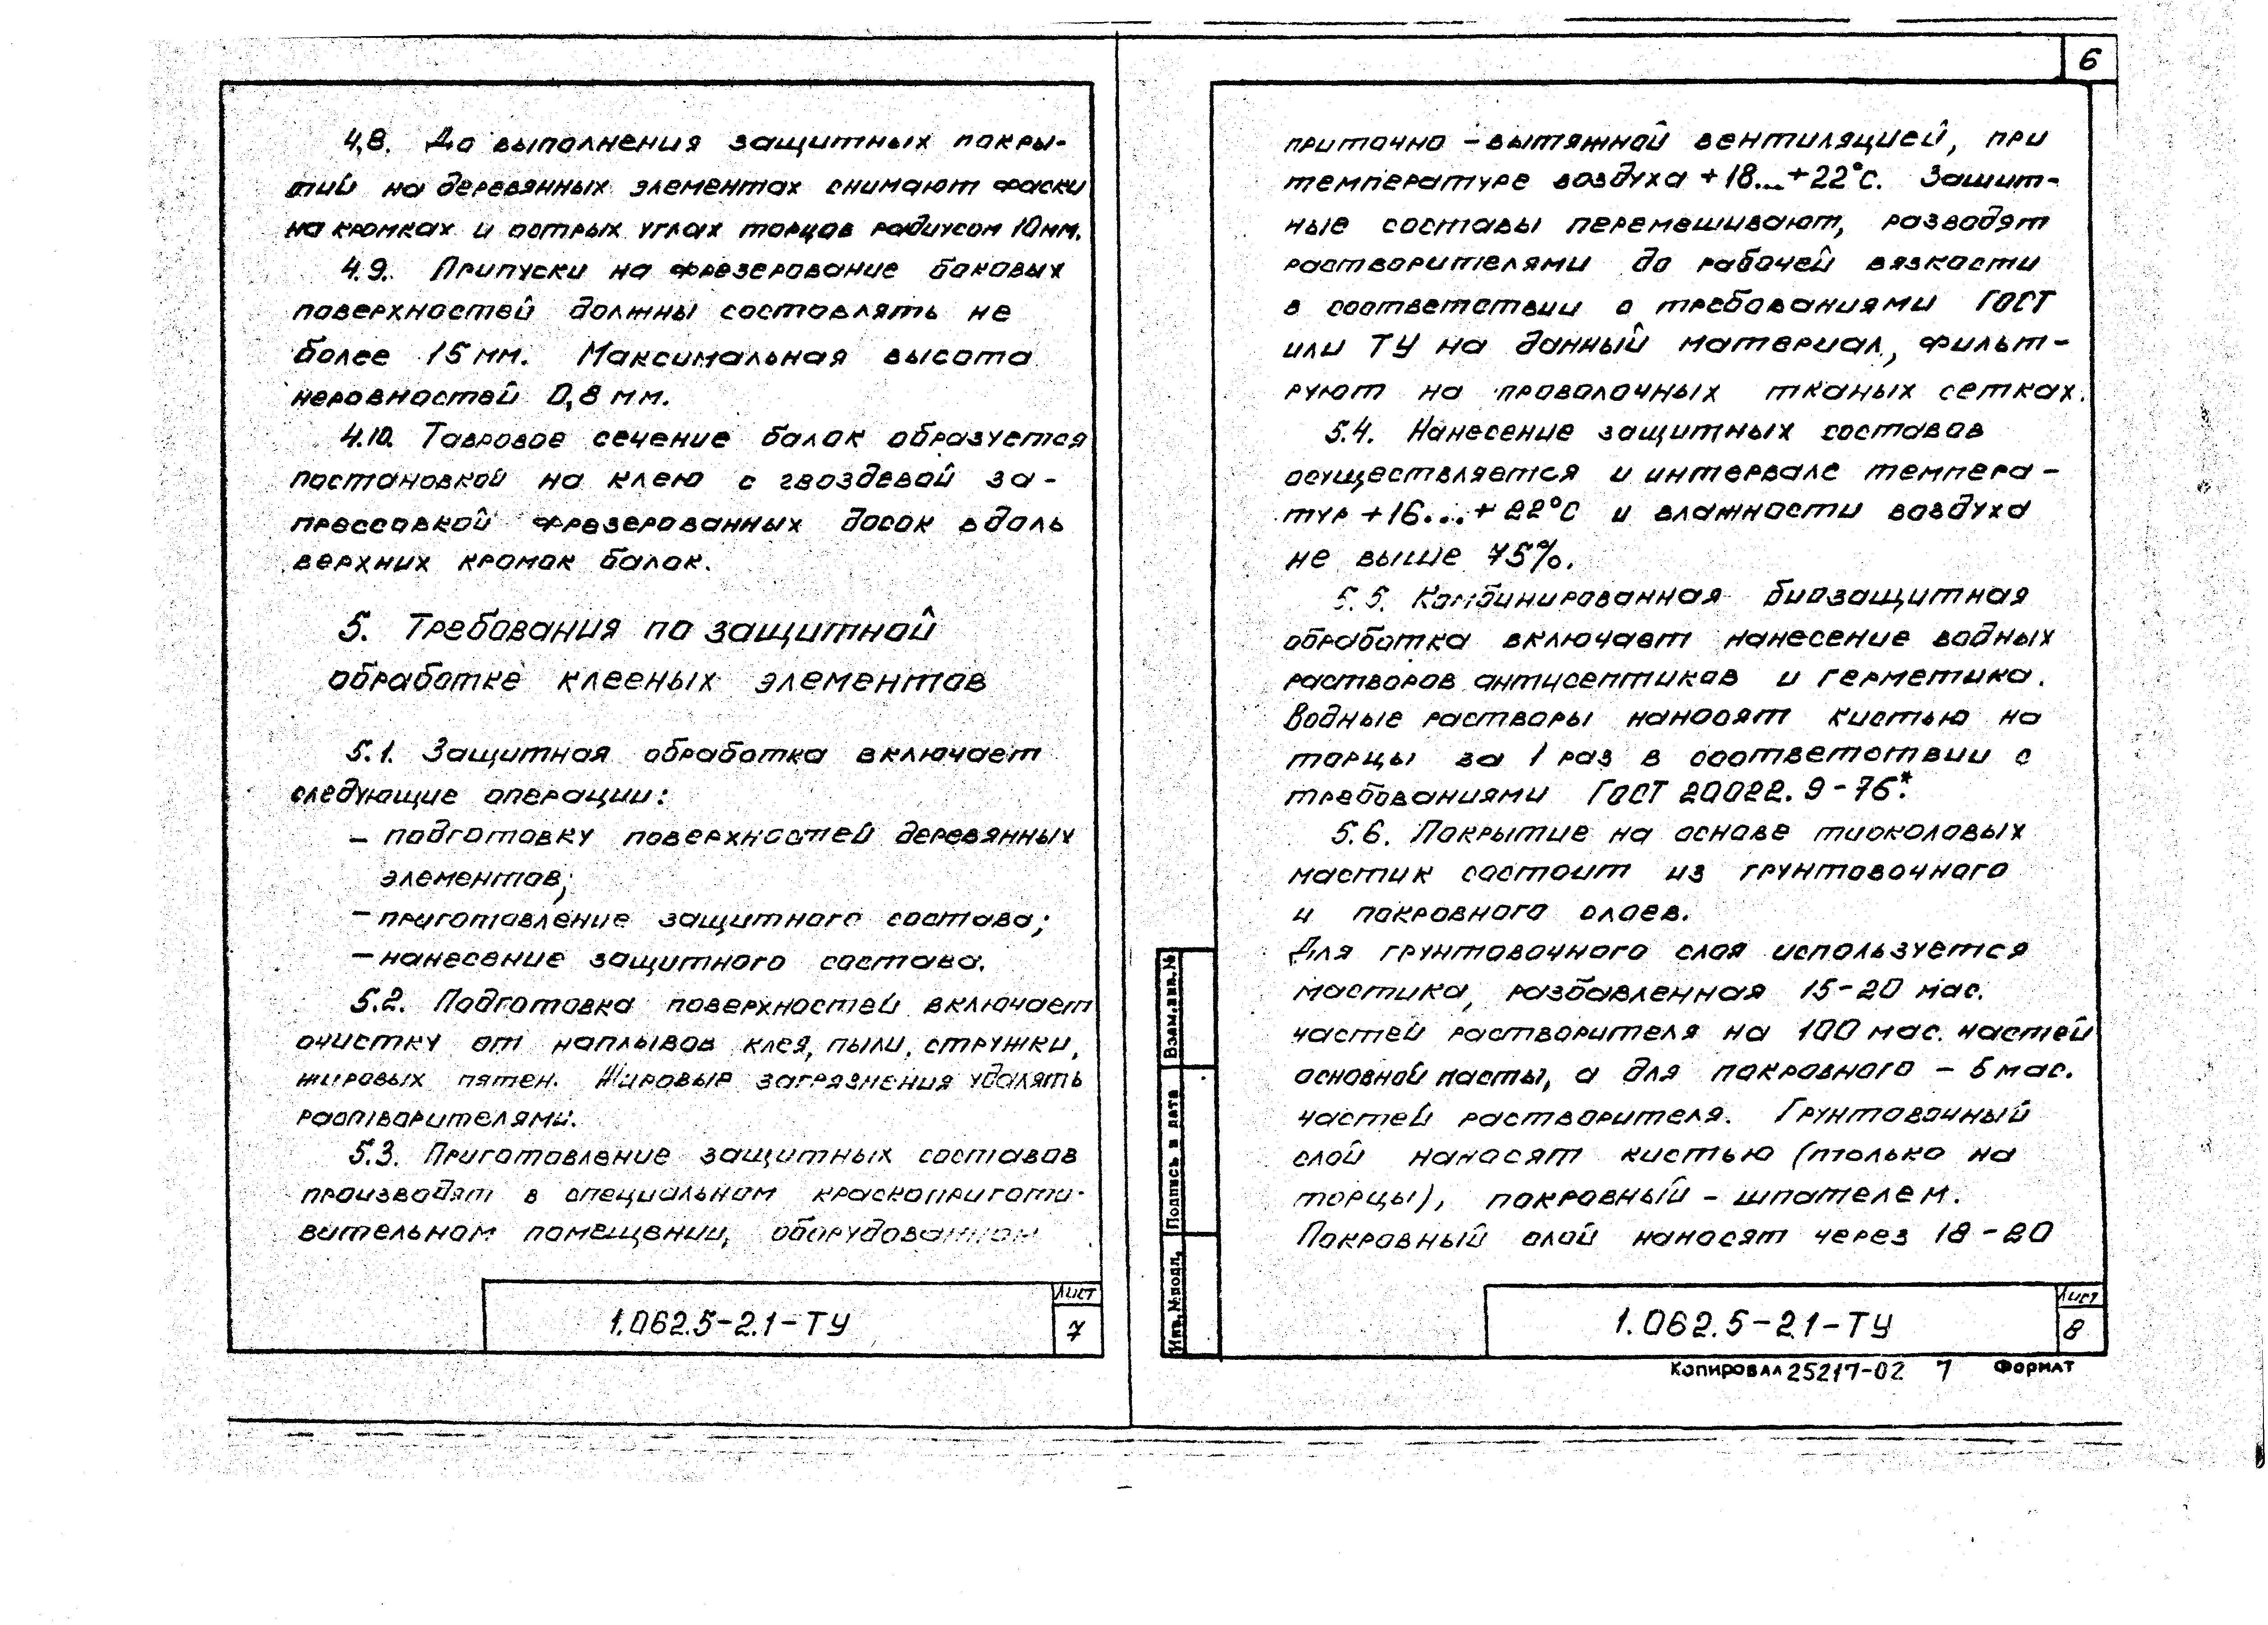 4.8. До выполнения защитных покры-
тий на деревянных элементах снимают фаски
на кромках и острых углах торцов радиусом 10мм.
4.9. Припуски на фрезерование боковых
поверхностей должны составлять не
более 15 мм. Максимальная высота
неровностей 0,8 мм.
4.10. Тавровое сечение балок образуется
постановкой на клею с гвоздевой за-
прессовкой фрезерованных досок вдоль
верхних кромок балок.
5. Требования по защитной
обработке клееных элементов
5.1. Защитная обработка включает
следующие операции:
- подготовку поверхностей деревянных
элементов;
- приготовление защитного состава;
- нанесение защитного состава.
5.2. Подготовка поверхностей включает
очистку от наплывов клея, пыли, стружки,
жировых пятен. Жировые загрязнения удалять
растворителями.
5.3. Приготовление защитных составов
производят в специальном краскопригото-
вительном помещении, оборудованном
1.062.5-2.1-ТУ
Лист
7
6
приточно-вытяжной вентиляцией, при
температуре воздуха +18...+22°С. Защит-
ные составы перемешивают, разводят
растворителями до рабочей вязкости
в соответствии с требованиями ГОСТ
или ТУ на данный материал, фильт-
руют на проволочных тканых сетках.
5.4. Нанесение защитных составов
осуществляется и интервале темпера-
тур +16...+22°С и влажности воздуха
не выше 75%.
5.5. Комбинированная биозащитная
обработка включает нанесение водных
растворов антисептиков и герметика.
Водные растворы наносят кистью на
торцы за 1 раз в соответствии с
требованиями ГОСТ 20022.9-76*.
5.6. Покрытие на основе тиоколовых
мастик состоит из грунтовочного
и покровного слоев.
Для грунтовочного слоя используется
мастика, разбавленная 15-20 мас.
частей растворителя на 100 мас. частей
основной пасты, а для покровного - 5 мас.
частей растворителя. Грунтовочный
слой наносят кистью (только на
торцы), покровный - шпателем.
Покровный слой наносят через 18-20
Взам.инв.№
Подпись и дата
Инв.№подл.
1.062.5-2.1-ТУ
Лист
8
Копировал 25217-02 7 Формат